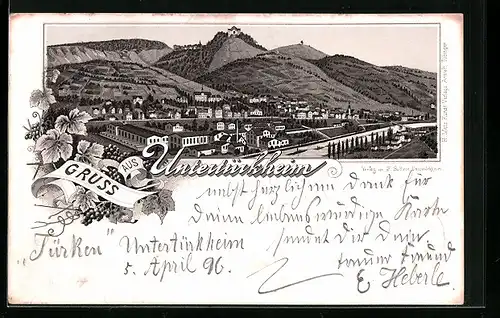 GRUSS
AUS
Untertürkheim
nebst herzlichem Dank für
Deine liebenswürdige Karte
sendet Dir Dein
treuer Freund
E Heberle
"Türken" Untertürkheim
5. April 96.